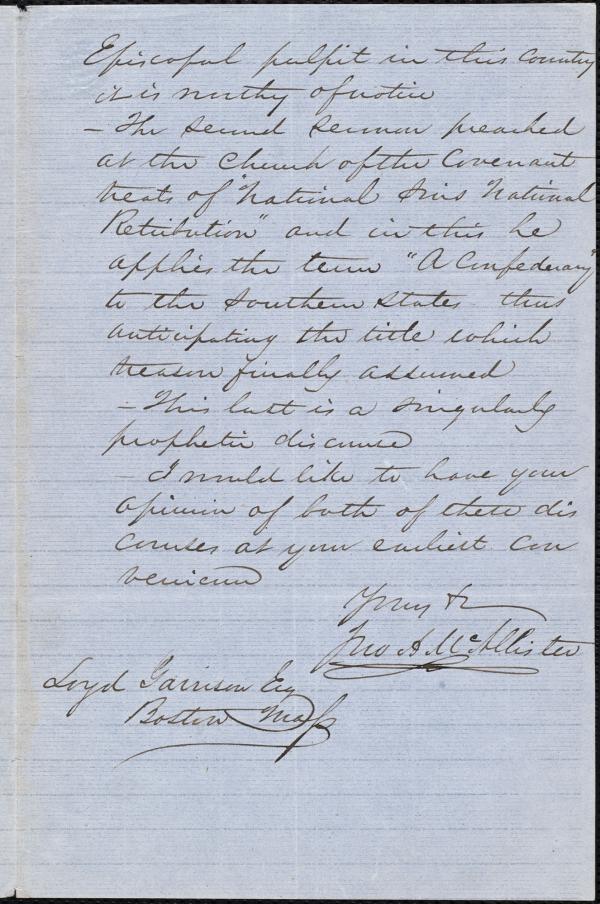 Episcopal pulpit in this Country
it is worthy of notice
- The second sermon preached
at the Church of the Covenant
treats of "National Sins National
Retribution" and in this he
applies the term "A Confederacy"
to the Southern States thus
anticipating the title which
treason finally assumed
- This last is a singularly
prophetic discourse
- I would like to have your
opinion of both of these dis
courses at your earliest con
venience
Yours &c
Jno A. McAllister
Loyd Garrison Esq
Boston Mass